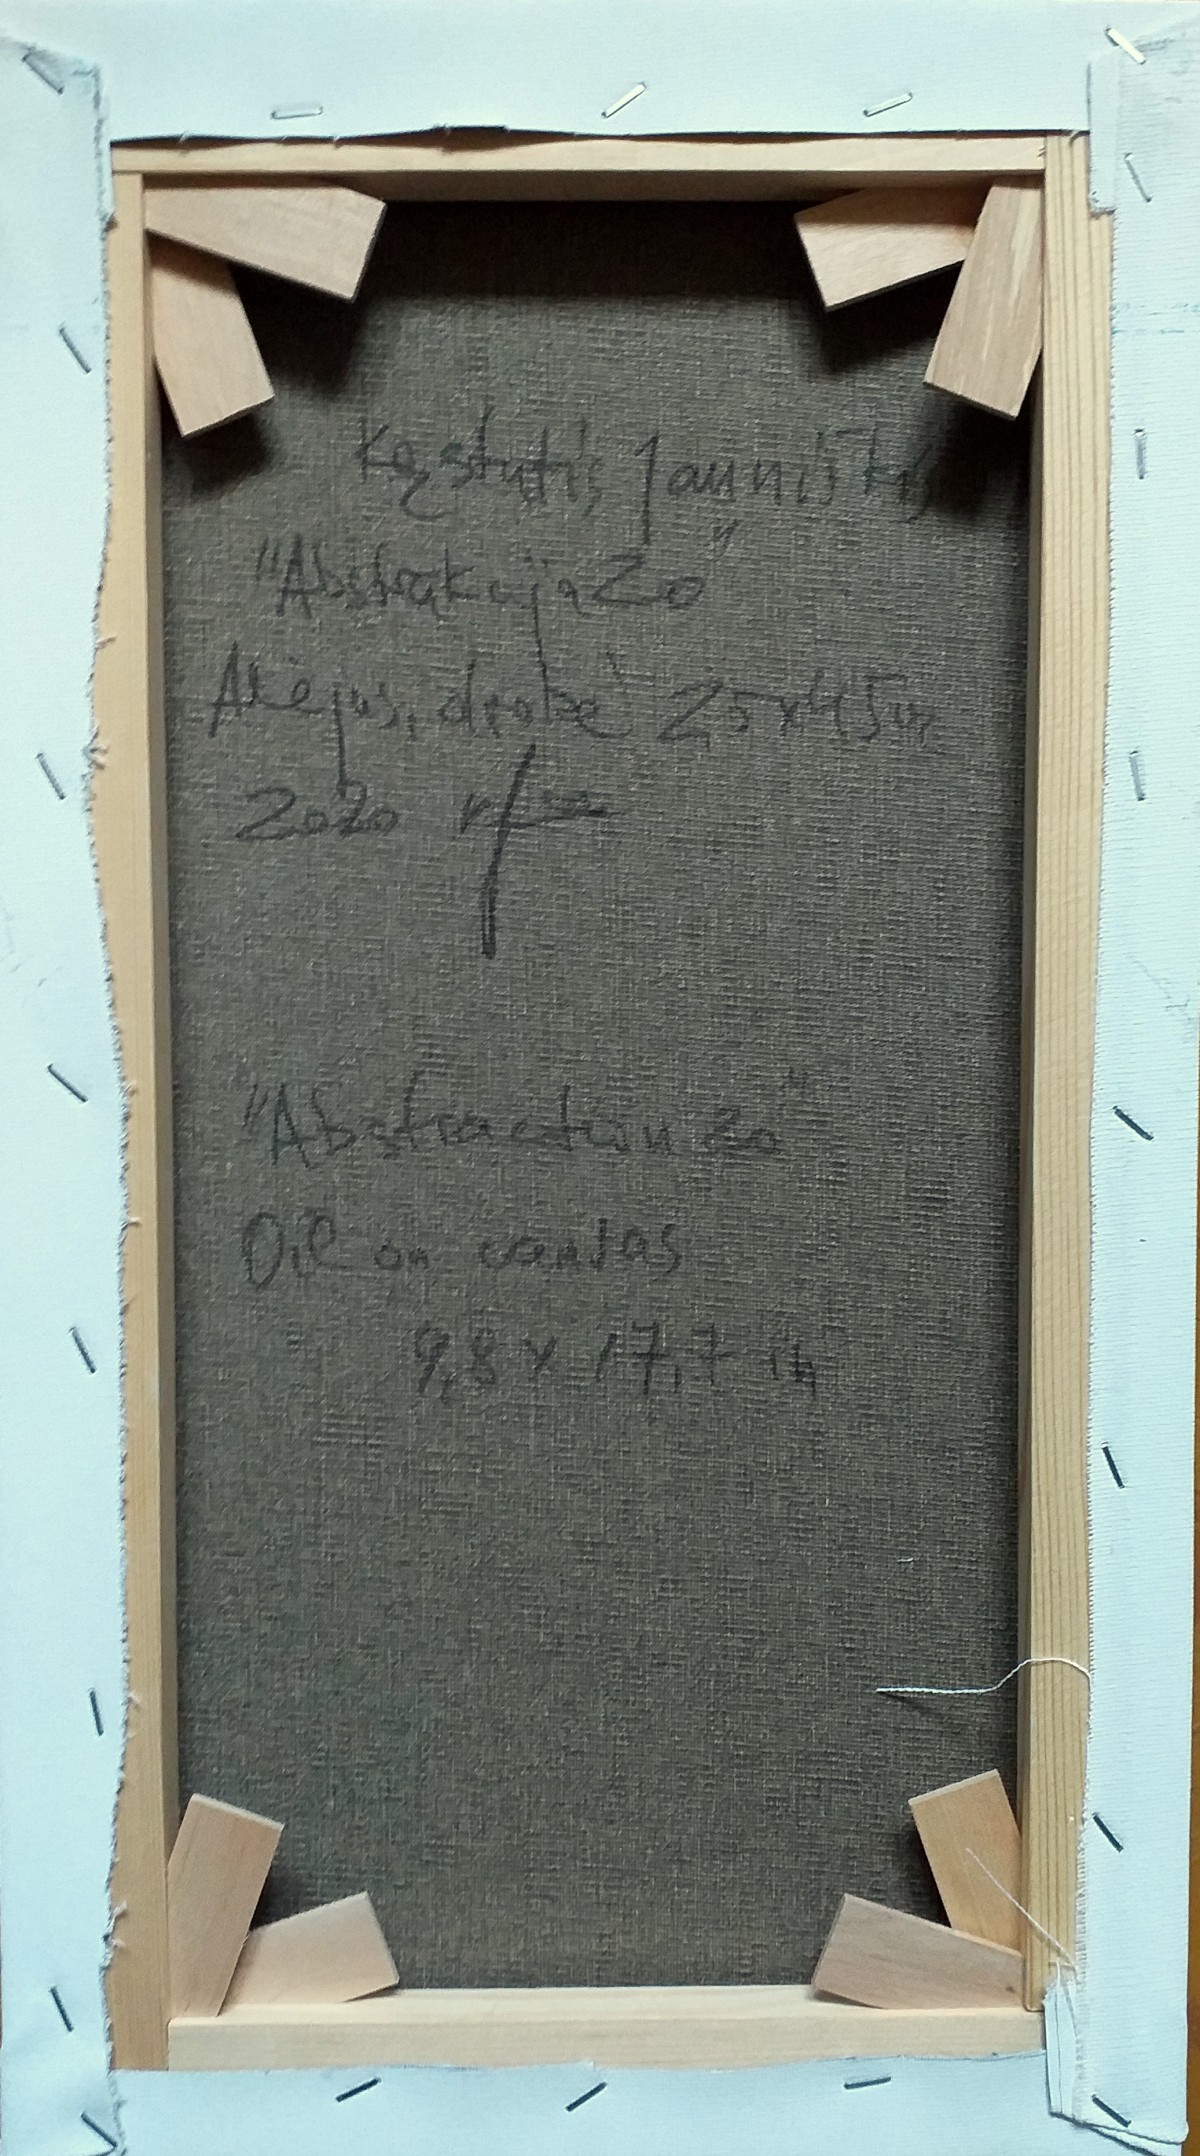 Kęstutis Jauniškis
"Abstrakcija 20"
Aliejus, drobė 25x45cm
2020
"Abstraction 20"
Oil on canvas
9,8 x 17,7 in